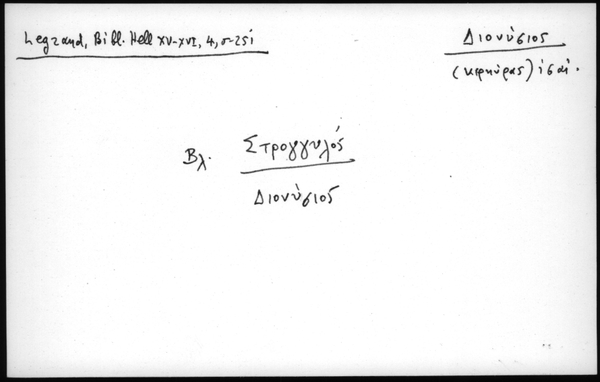 Legrand, Bibl. Hell XV-XVI, 4, σ-251
Διονύσιος
(κερκύρας) ις αἰ.
Βλ. Στρογγυλός
Διονύσιος